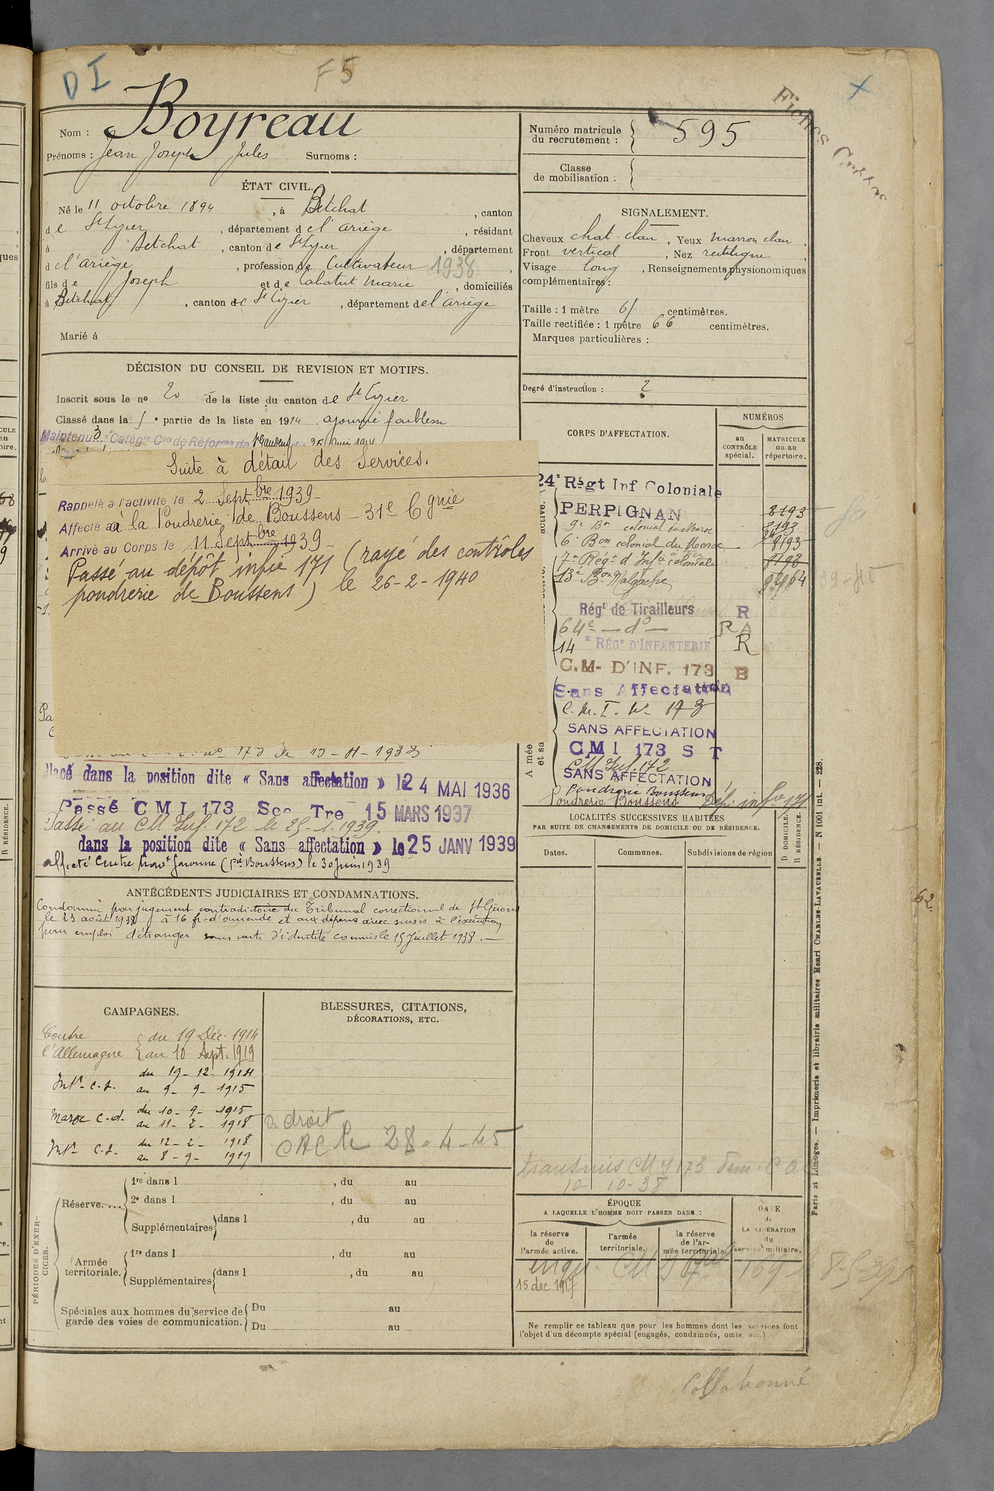 D I
F 5
X
Fiches
Nom : Boyreau
Prénoms : Jean Joseph Jules Surnoms :
Numéro matricule du recrutement : 595
Classe de mobilisation :
ÉTAT CIVIL.
Né le 11 octobre 1894, à Betchat, canton
de St Lyzier, département de l'Ariège, résidant
à Betchat, canton de St Lyzier, département
de l'Ariège, profession de Cultivateur 1938,
fils de Joseph et de Marie, domiciliés
à Betchat, canton de St Lyzier, département de l'Ariège
Marié à
SIGNALEMENT.
Cheveux chat. clair, Yeux marron clair,
Front vertical, Nez rectiligne,
Visage long, Renseignements physionomiques
complémentaires:
Taille : 1 mètre 61 centimètres.
Taille rectifiée : 1 mètre 66 centimètres.
Marques particulières :
Degré d'instruction : 2
DÉCISION DU CONSEIL DE REVISION ET MOTIFS.
Inscrit sous le no 20 de la liste du canton de St Lyzier
Classé dans la 1e partie de la liste en 1914. ajourné faiblesse
Maintenu Catégie Con de Réforme de
Suite à détail des Services.
Rappelé à l'activité le 2 Septbre 1939
Affecté à la Poudrerie de Boussens - 31e Cgnie
Arrivé au Corps le 11 Septbre 1939
Passé au dépôt infie 171 (rayé des contrôles
poudrerie de Boussens) le 26-2-1940
Placé dans la position dite « Sans affectation » le 24 MAI 1936
Passé CMI 173 Sec Tre 15 MARS 1937
Passé au CM Inf. 172 le 25-1-1939.
dans la position dite « Sans affectation » le 25 JANV 1939
affecté Centre (Pie Boussens) le 30 juin 1939
CORPS D'AFFECTATION.
NUMÉROS
au CONTRÔLE spécial.
MATRICULE ou au répertoire.
24e Régt Inf Coloniale
PERPIGNAN 8193
9e Bn colonial du Maroc 8193
6e Bon colonial du Maroc 8193
7e Régt d'Infie coloniale
13e Bon Malgache
Régt de Tirailleurs R
64e — do — R A
14 e RÉGt D'INFANTERIE R
C.M. D'INF. 173 B
Sans Affectation
C.M.I. No 173
SANS AFFECTATION
CMI 173 S T
CM Inf. 172
SANS AFFECTATION
Poudrerie Boussens
Poudrerie Boussens Dép. infie 171
ANTÉCÉDENTS JUDICIAIRES ET CONDAMNATIONS.
Condamné par jugement contradictoire du Tribunal correctionnel de St Girons
le 23 août 1938 à 16 fr. d'amende et aux dépens avec sursis à l'exécution
pour emploi d'étranger sans carte d'identité commis le 15 Juillet 1938. —
LOCALITÉS SUCCESSIVES HABITÉES
PAR SUITE DE CHANGEMENTS DE DOMICILE OU DE RÉSIDENCE.
Dates. Communes. Subdivisions de région
D DOMICILE. R RÉSIDENCE.
CAMPAGNES.
Contre l'Allemagne du 19 Déc. 1914
au 10 Sept. 1919
Intr C.S. du 19-12-1914
au 9-9-1915
Maroc C.d. du 10-9-1915
au 11-2-1918
Intr C.S. du 12-2-1918
au 8-9-1919
BLESSURES, CITATIONS,
DÉCORATIONS, ETC.
a droit
CAC le 28-4-45
transmis CM I 173
10-10-38
PÉRIODES D'EXERCICES.
Réserve....
1re dans l , du au
2e dans l , du au
Supplémentaires dans l , du au
Armée territoriale.
1re dans l , du au
Supplémentaires dans l , du au
Spéciales aux hommes du service de
garde des voies de communication.
Du au
Du au
ÉPOQUE
A LAQUELLE L'HOMME DOIT PASSER DANS :
la réserve de l'armée active.
l'armée territoriale.
la réserve de l'armée territoriale.
DATE de LA LIBÉRATION du service militaire.
15 dec. 1917
Ne remplir ce tableau que pour les hommes dont les services font
l'objet d'un décompte spécial (engagés, condamnés, omis, etc.)
Collationné
Paris et Limoges. — Imprimerie et librairie militaires Henri CHARLES-LAVAUZELLE. — N 1001 int. — 228.
62